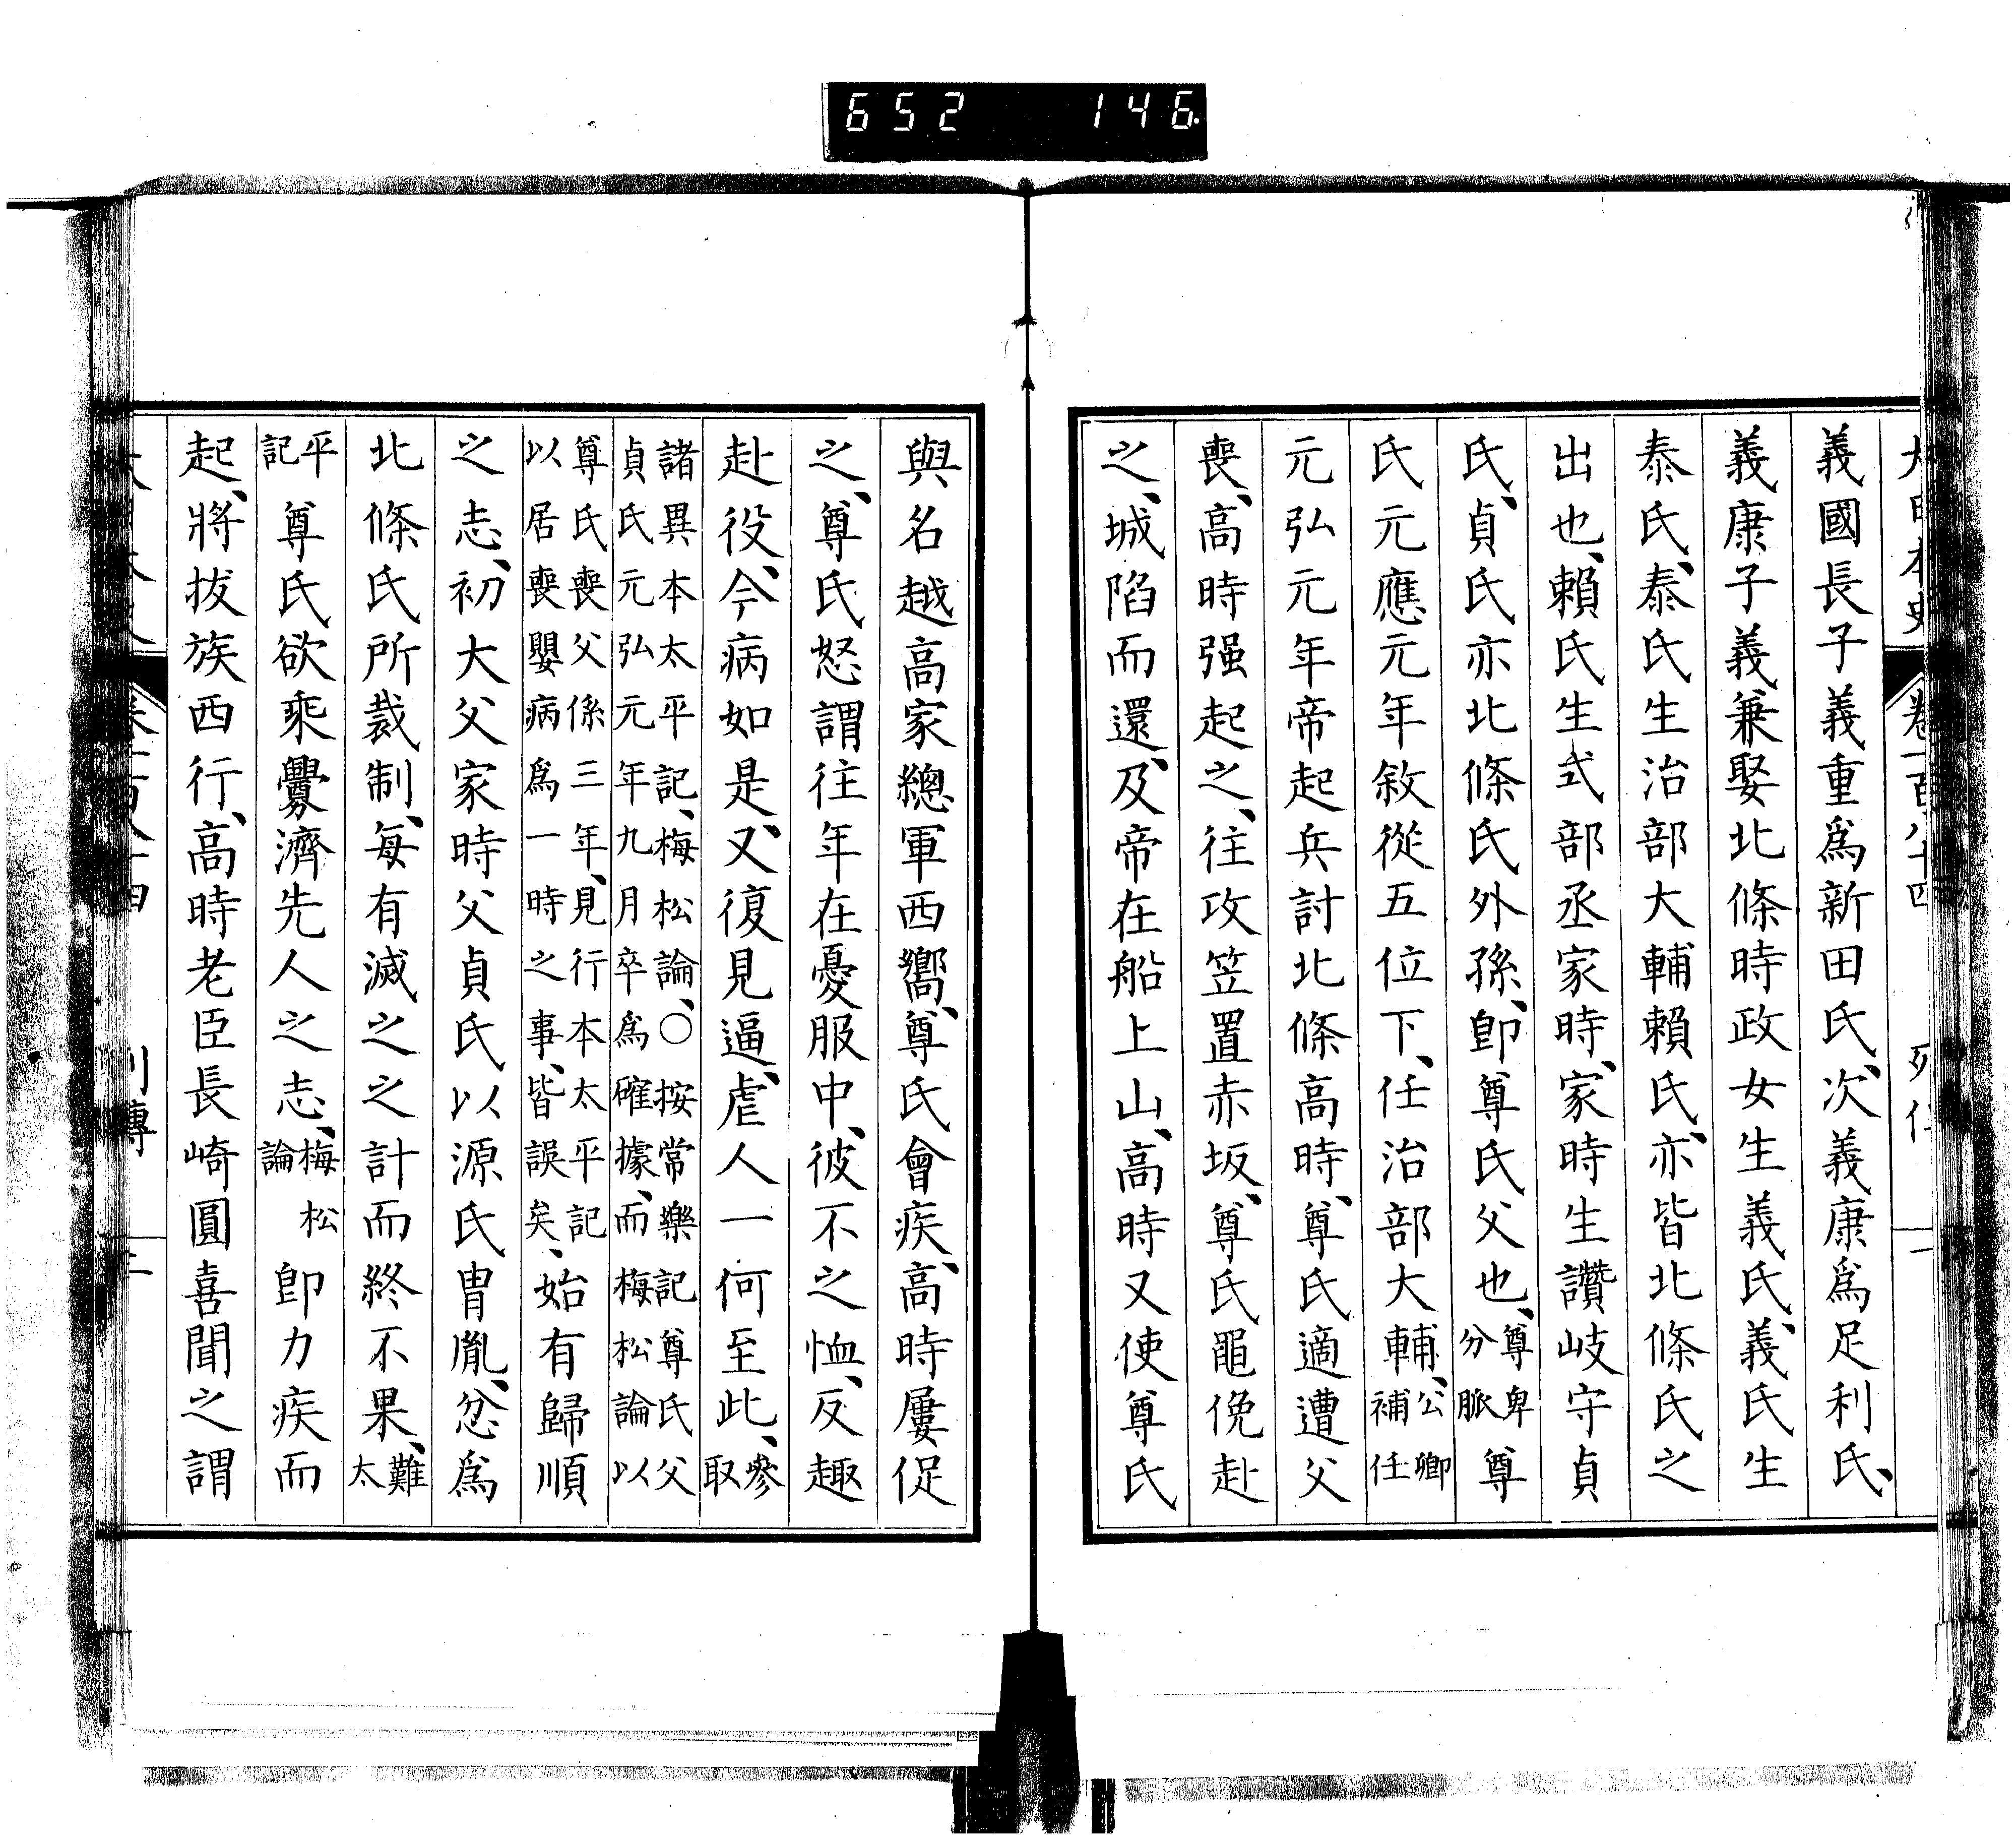 652 146
大日本史 卷一百八十四 列傳 一
義國長子義重爲新田氏、次義康爲足利氏、
義康子義兼娶北條時政女生義氏、義氏生
泰氏、泰氏生治部大輔賴氏、亦皆北條氏之
出也、賴氏生式部丞家時、家時生讚岐守貞
氏、貞氏亦北條氏外孫、卽尊氏父也、尊卑分脈尊
氏元應元年敘從五位下、任治部大輔、公卿補任
元弘元年帝起兵討北條高時、尊氏適遭父
喪、高時强起之、往攻笠置赤坂、尊氏黽俛赴
之、城陷而還、及帝在船上山、高時又使尊氏
與名越高家總軍西嚮、尊氏會疾、高時屢促
之、尊氏怒謂往年在憂服中、彼不之恤、反趣
赴役、今病如是、又復見逼、虐人一何至此、參取
諸異本太平記、梅松論、○按常樂記尊氏父
貞氏元弘元年九月卒爲確據、而梅松論以
尊氏喪父係三年、見行本太平記
以居喪嬰病爲一時之事、皆誤矣、始有歸順
之志、初大父家時父貞氏以源氏冑胤、忿爲
北條氏所裁制、每有滅之之計而終不果、難太
平記尊氏欲乘釁濟先人之志、梅松論卽力疾而
起、將拔族西行、高時老臣長崎圓喜聞之謂